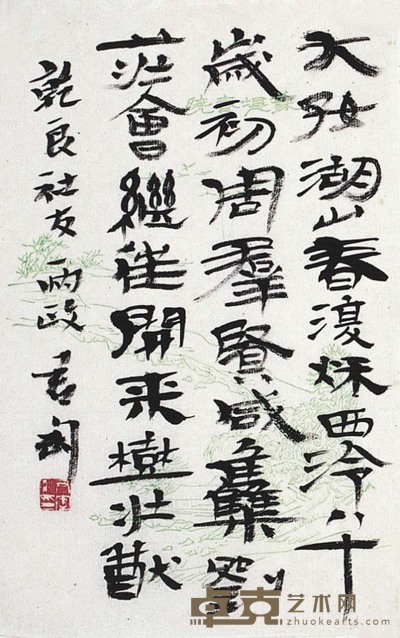 大好湖山春復秋西泠八十
歲初周羣賢咸集劉
莊會繼往開來樹壯猷
乾良社友政君匋
卓克艺术网
www.zhuokearts.com